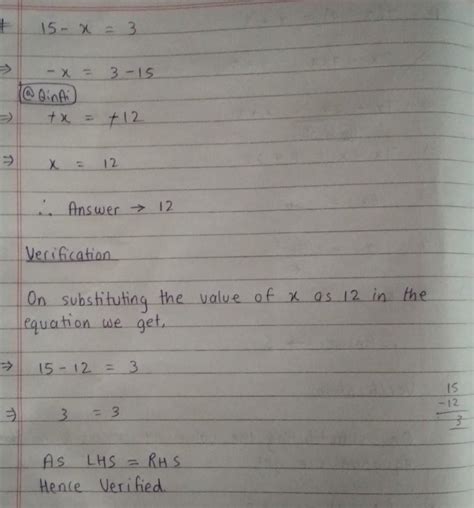 15 - x = 3
⇒ -x = 3 - 15
@QinAi
⇒ +x = +12
⇒ x = 12
∴ Answer → 12
Verification
On substituting the value of x as 12 in the
equation we get,
⇒ 15 - 12 = 3
15
-12
3
⇒ 3 = 3
As LHS = RHS
Hence Verified.